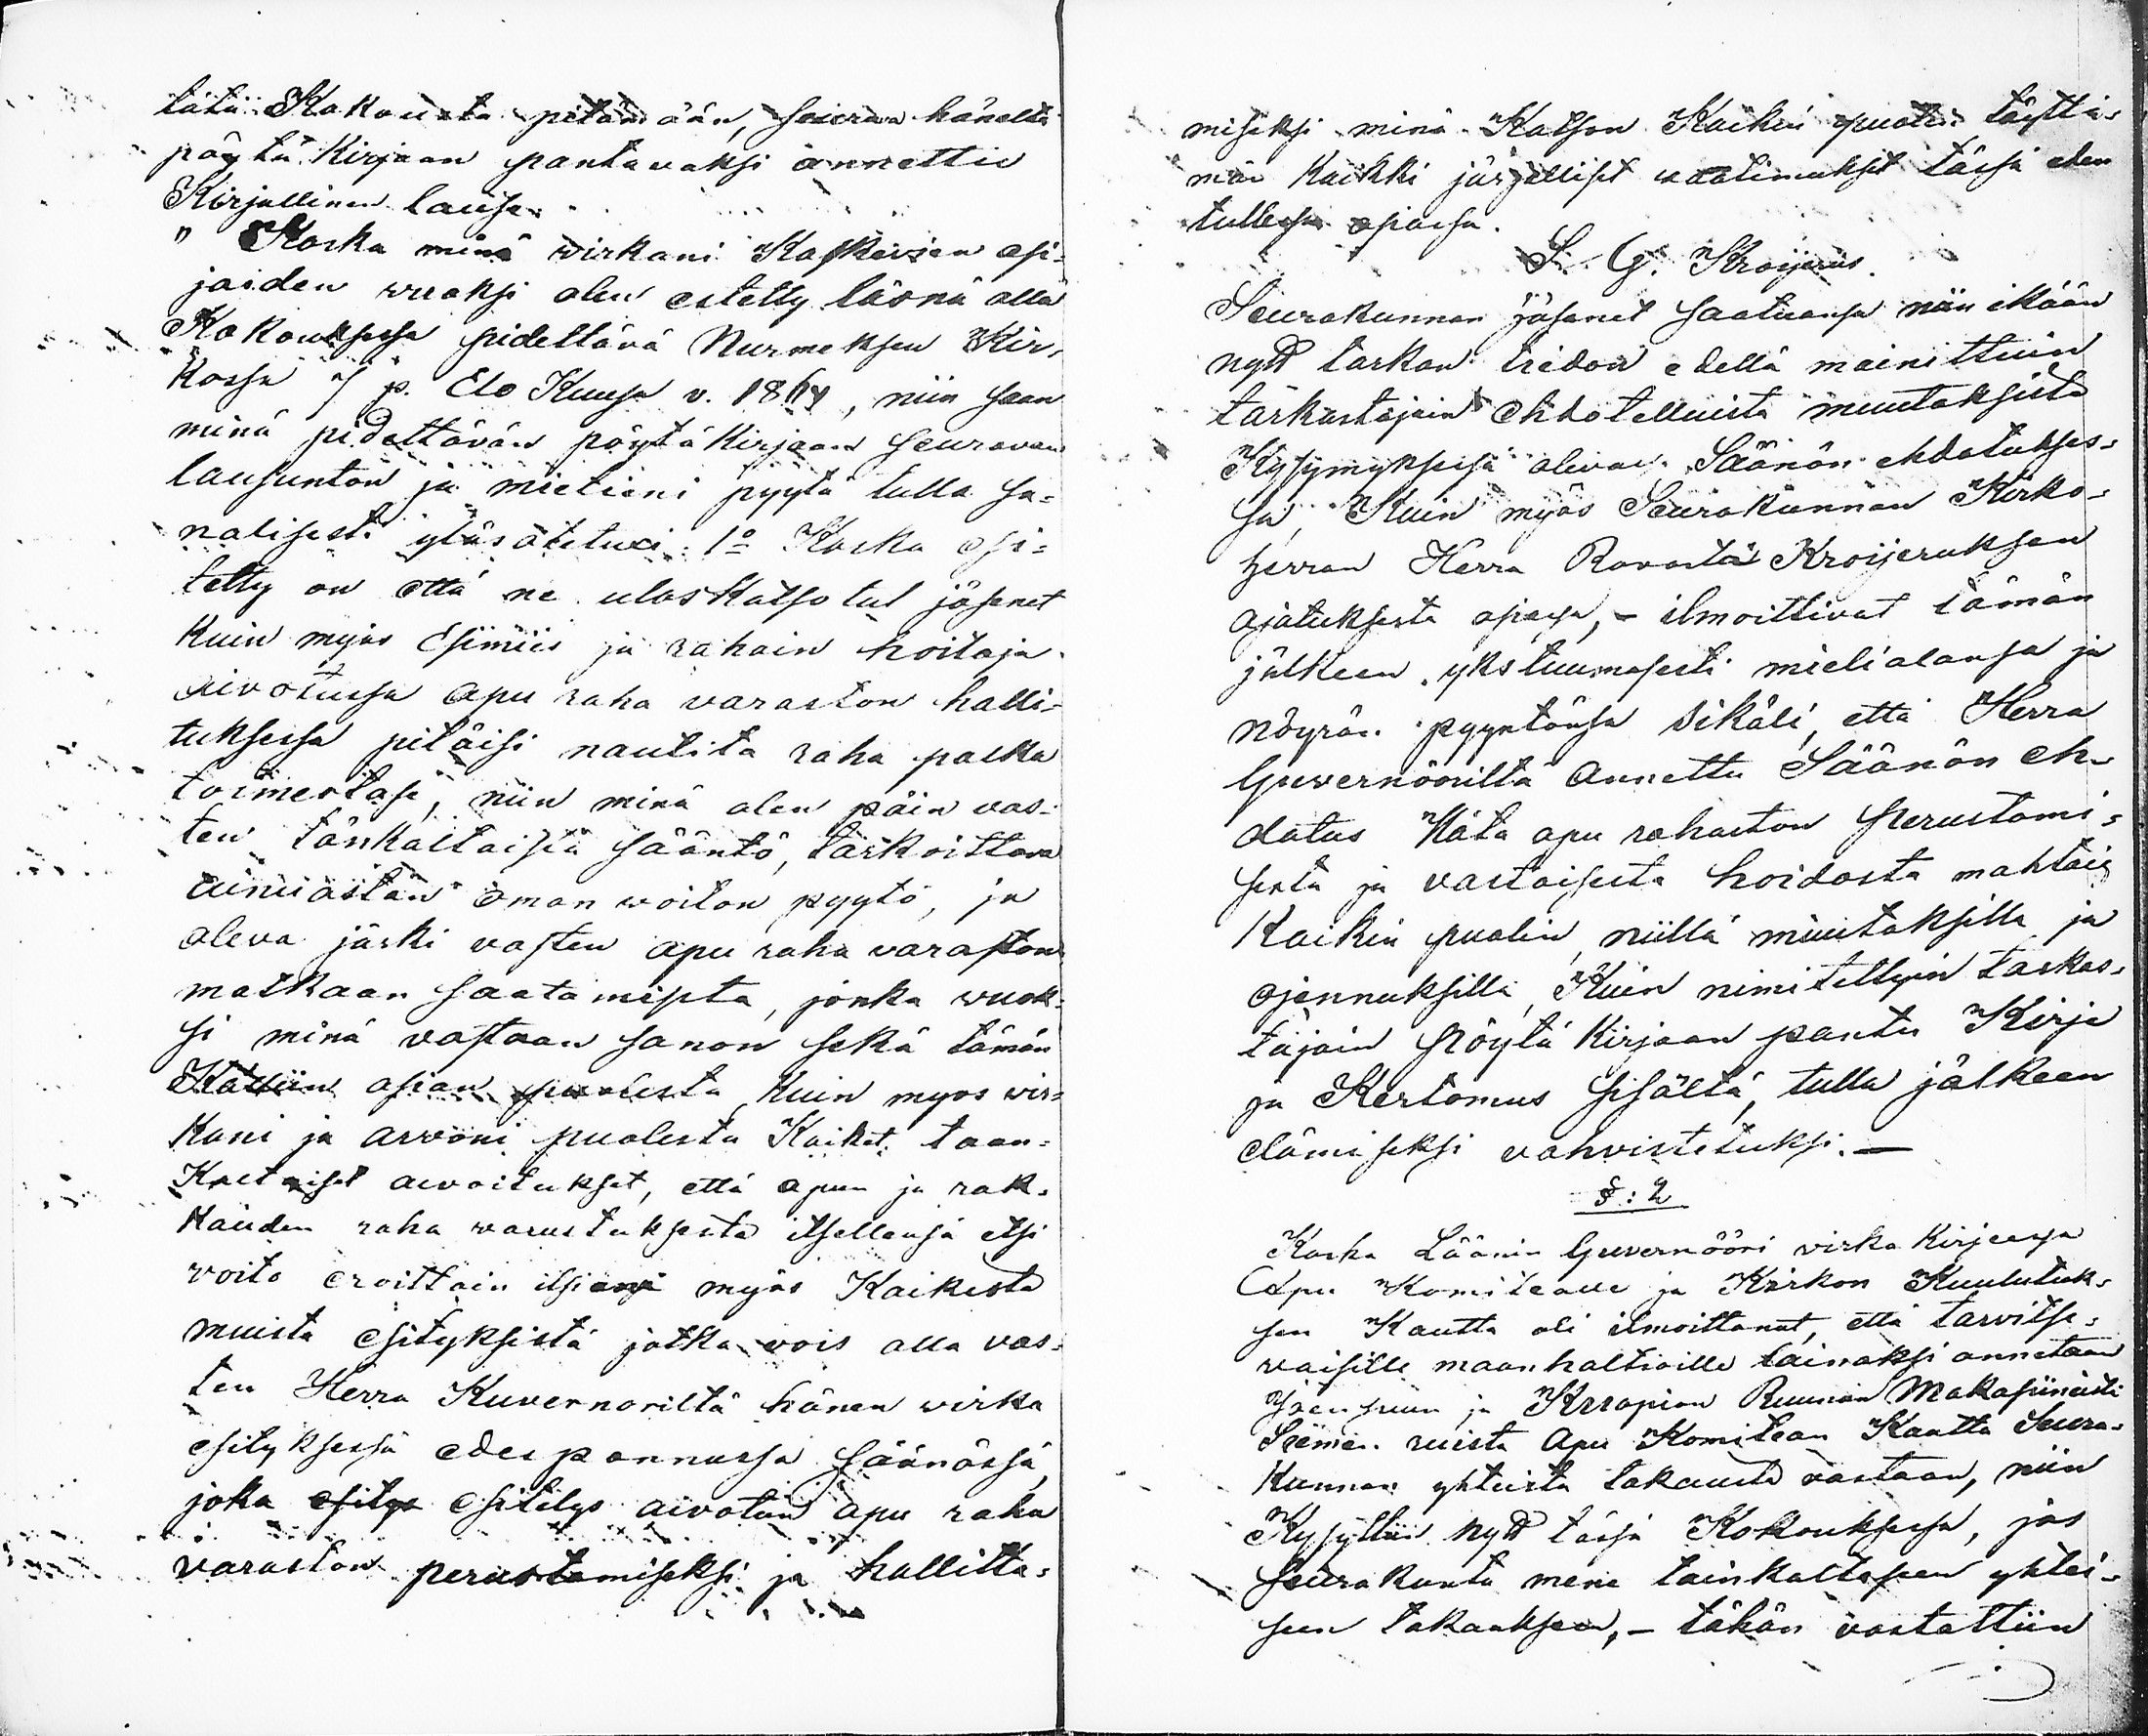 tätä Kokousta pitämään, seurava häneltä
pöytä Kirjaan pantavaksi annettu
Kirjallinen lause.
" Koska minä wirkani Koskevien asi-
jaiden wuoksi olen estetty läsnä olla
Kokouksessa pidettävä Nurmeksen Kir-
kossa 7 p. Elo Kuusa v. 1864, niin saan
minä pidettävän pöytä Kirjaan seuravan
lausunton ja mieleeni pyytä tulla sa-
nalisesti 1o Koska esi-
tetty on että ne uloskatsotut jäsenet
Kuin myös Esimiis ja rahain hoitaja
aivotussa apu raha varaston halli-
tuksessa pitäisi nautita raha palka
toimestase, niin minä olen päin vas-
ten tänkaltaista sääntö, tarkoittava
ainiastan oman woiton pyytö, ja
oleva järki vasten apu raha varaston
matkaan saatamista, jonka wuok-
si minä vastaan sanon sekä tämän
Kalliin asian puolesta Kuin myos wir-
Kani ja arvoni puolesta Kaiket taan-
Kaltaiset aivoitukset, että apun ja rak-
Kauden raha varustuksesta itsellensä etsi
voito eroittain itsiani myös Kaikesta
muista esityksistä jotka vois olla vas-
ten Herra Kuvernoriltä hänen wirka
esityksessä edes pannussa säänössä,
joka esitys esitelys aivotun apu raha
varaston perustamiseksi ja hallitta-
miseksi minä Katson Kaikin puolin täyttä-
män kaikki järjelliset waatimukset tässä eden
tullessa asiassa.
S. G. Kroijerus.
Seurakunnan jäsenet saatuansa niin ikään
nytt tarkan tiedon edellä mainittuin
tarkastajain ehdotelluista muutoksista
Kysymyksessä olevas Säänön ehdotukses-
sa, Kuin myös Seurakunnan Kirko-
herran Herra Rovasta Kroijeruksen
ajatuksesta asiassa, - ilmoittivat tämän
jälkeen ykstuumasesti mielialansa ja
nöyrän pyyntönsä sikäli, että Herra
Guvernöörilta annettu Säänön eh-
dotus Häta apu rahaston perustami-
sesta ja vastaisesta hoidosta mahtais
Kaikin puolin, niillä muutoksilla ja
ojennuksilla, Kuin nimitettyin tarkas-
tajain pöytä Kirjaan pantu Kirje
ja Kertomus sisältä, tulla jälkeen
elämiseksi vahvistetuksi. —
§: 2
Koska Läänin Guvernööri virka Kirjeessa
Apu Komiteaue ja Kirkon Kuulutuk-
sen Kautta oli ilmoittanut, että tarvitse-
vaisille maanhaltioille lainaksi annetaan
Joensuun ja Ruunan Makasiineisti
Siemen ruista Apu Komitean Kautta Seura-
Kunnan yhteista takausta vastaan, niin
Kysyttiin nytt tässä Kokouksessa, jos
Seurakunta mene tainkaltaseen yhtei-
seen takaukseen, - tähän vastattiin